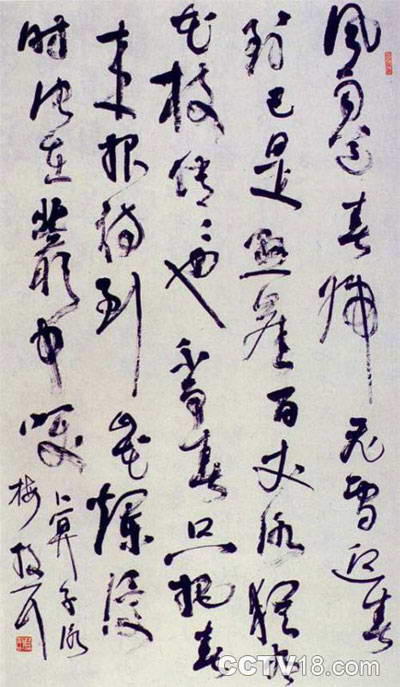 風雨送春歸飛雪迎春
到已是懸崖百丈冰猶有
花枝俏〻也不爭春只把春
来报待到山花爛漫
时她在叢中笑
卜算子咏
梅
CCTV18.com